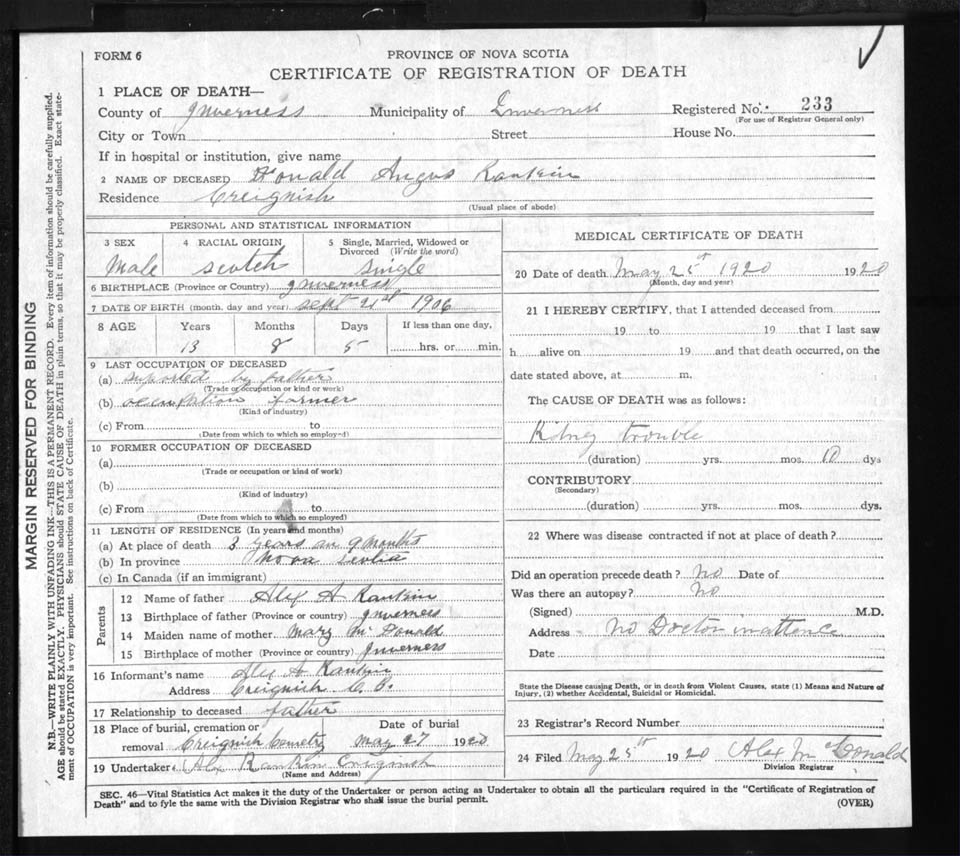 FORM 6
PROVINCE OF NOVA SCOTIA
CERTIFICATE OF REGISTRATION OF DEATH
1 PLACE OF DEATH—
County of Inverness Municipality of Inverness Registered No. 233
(For use of Registrar General only)
City or Town Street House No.
If in hospital or institution, give name
2 NAME OF DECEASED Donald Angus Rankin
Residence Creignish
(Usual place of abode)
PERSONAL AND STATISTICAL INFORMATION
3 SEX 4 RACIAL ORIGIN 5 Single, Married, Widowed or
Divorced (Write the word)
Male Scotch Single
6 BIRTHPLACE (Province or Country) Inverness
7 DATE OF BIRTH (month, day and year) Sept 21st 1906
8 AGE Years Months Days If less than one day,
13 8 5 hrs. or min.
9 LAST OCCUPATION OF DECEASED
(a) suported by father
(Trade or occupation or kind or work)
(b) occuption farmer
(Kind of industry)
(c) From to
(Date from which to which so employed)
10 FORMER OCCUPATION OF DECEASED
(a)
(Trade or occupation or kind of work)
(b)
(Kind of industry)
(c) From to
(Date from which to which so employed)
11 LENGTH OF RESIDENCE (In years and months)
(a) At place of death 3 years an 9 months
(b) In province Nova Scotia
(c) In Canada (if an immigrant)
Parents
12 Name of father Alex A Rankin
13 Birthplace of father (Province or country) Inverness
14 Maiden name of mother Mary McDonald
15 Birthplace of mother (Province or country) Inverness
16 Informant's name Alex A Rankin
Address Creignish C. B.
17 Relationship to deceased father
18 Place of burial, cremation or Date of burial
removal Creignish Cemetry May 27 1920
19 Undertaker Alex Rankin Creignish
(Name and Address)
MEDICAL CERTIFICATE OF DEATH
20 Date of death May 25th 1920 1920
(Month, day and year)
21 I HEREBY CERTIFY, that I attended deceased from
19 to 19 that I last saw
h alive on 19 and that death occurred, on the
date stated above, at m.
The CAUSE OF DEATH was as follows:
Kidney trouble
(duration) yrs. mos. 10 dys
CONTRIBUTORY
(Secondary)
(duration) yrs. mos. dys.
22 Where was disease contracted if not at place of death?
Did an operation precede death? No Date of
Was there an autopsy? No
(Signed) M.D.
Address No Doctor
Date
State the Disease causing Death, or in death from Violent Causes, state (1) Means and Nature of
Injury, (2) whether Accidental, Suicidal or Homicidal.
23 Registrar's Record Number
24 Filed May 25th 1920 Alex McDonald
Division Registrar
SEC. 46—Vital Statistics Act makes it the duty of the Undertaker or person acting as Undertaker to obtain all the particulars required in the "Certificate of Registration of
Death" and to fyle the same with the Division Registrar who shall issue the burial permit.
(OVER)
MARGIN RESERVED FOR BINDING
N.B.—WRITE PLAINLY WITH UNFADING INK—THIS IS A PERMANENT RECORD. Every item of information should be carefully supplied.
AGE should be stated EXACTLY. PHYSICIANS should STATE CAUSE OF DEATH in plain terms, so that it may be properly classified. Exact state-
ment of OCCUPATION is very important. See instructions on back of Certificate.